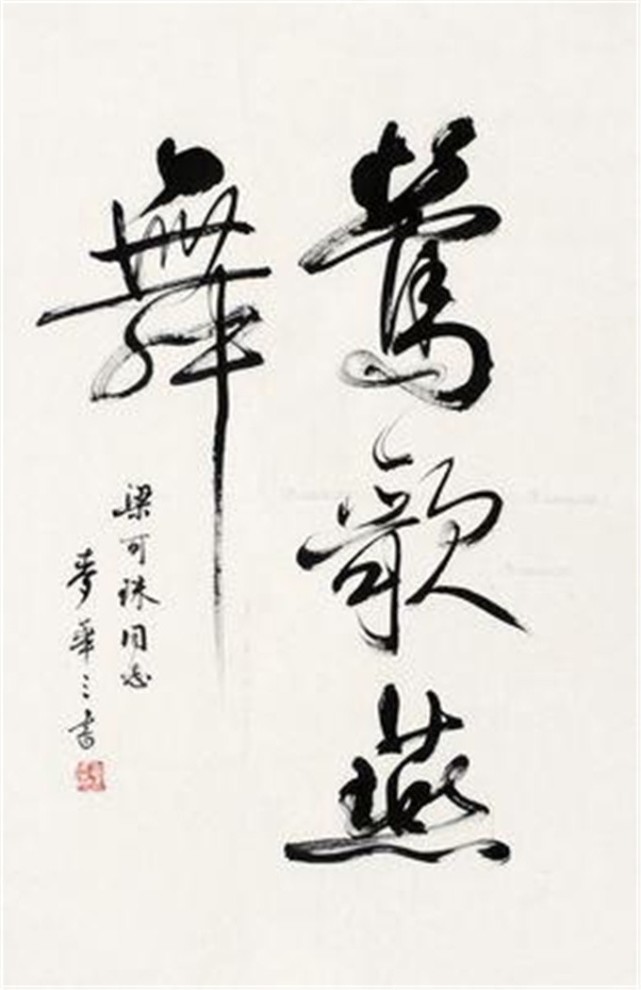 鶯歌燕
舞
梁可珠同志
麦華三書